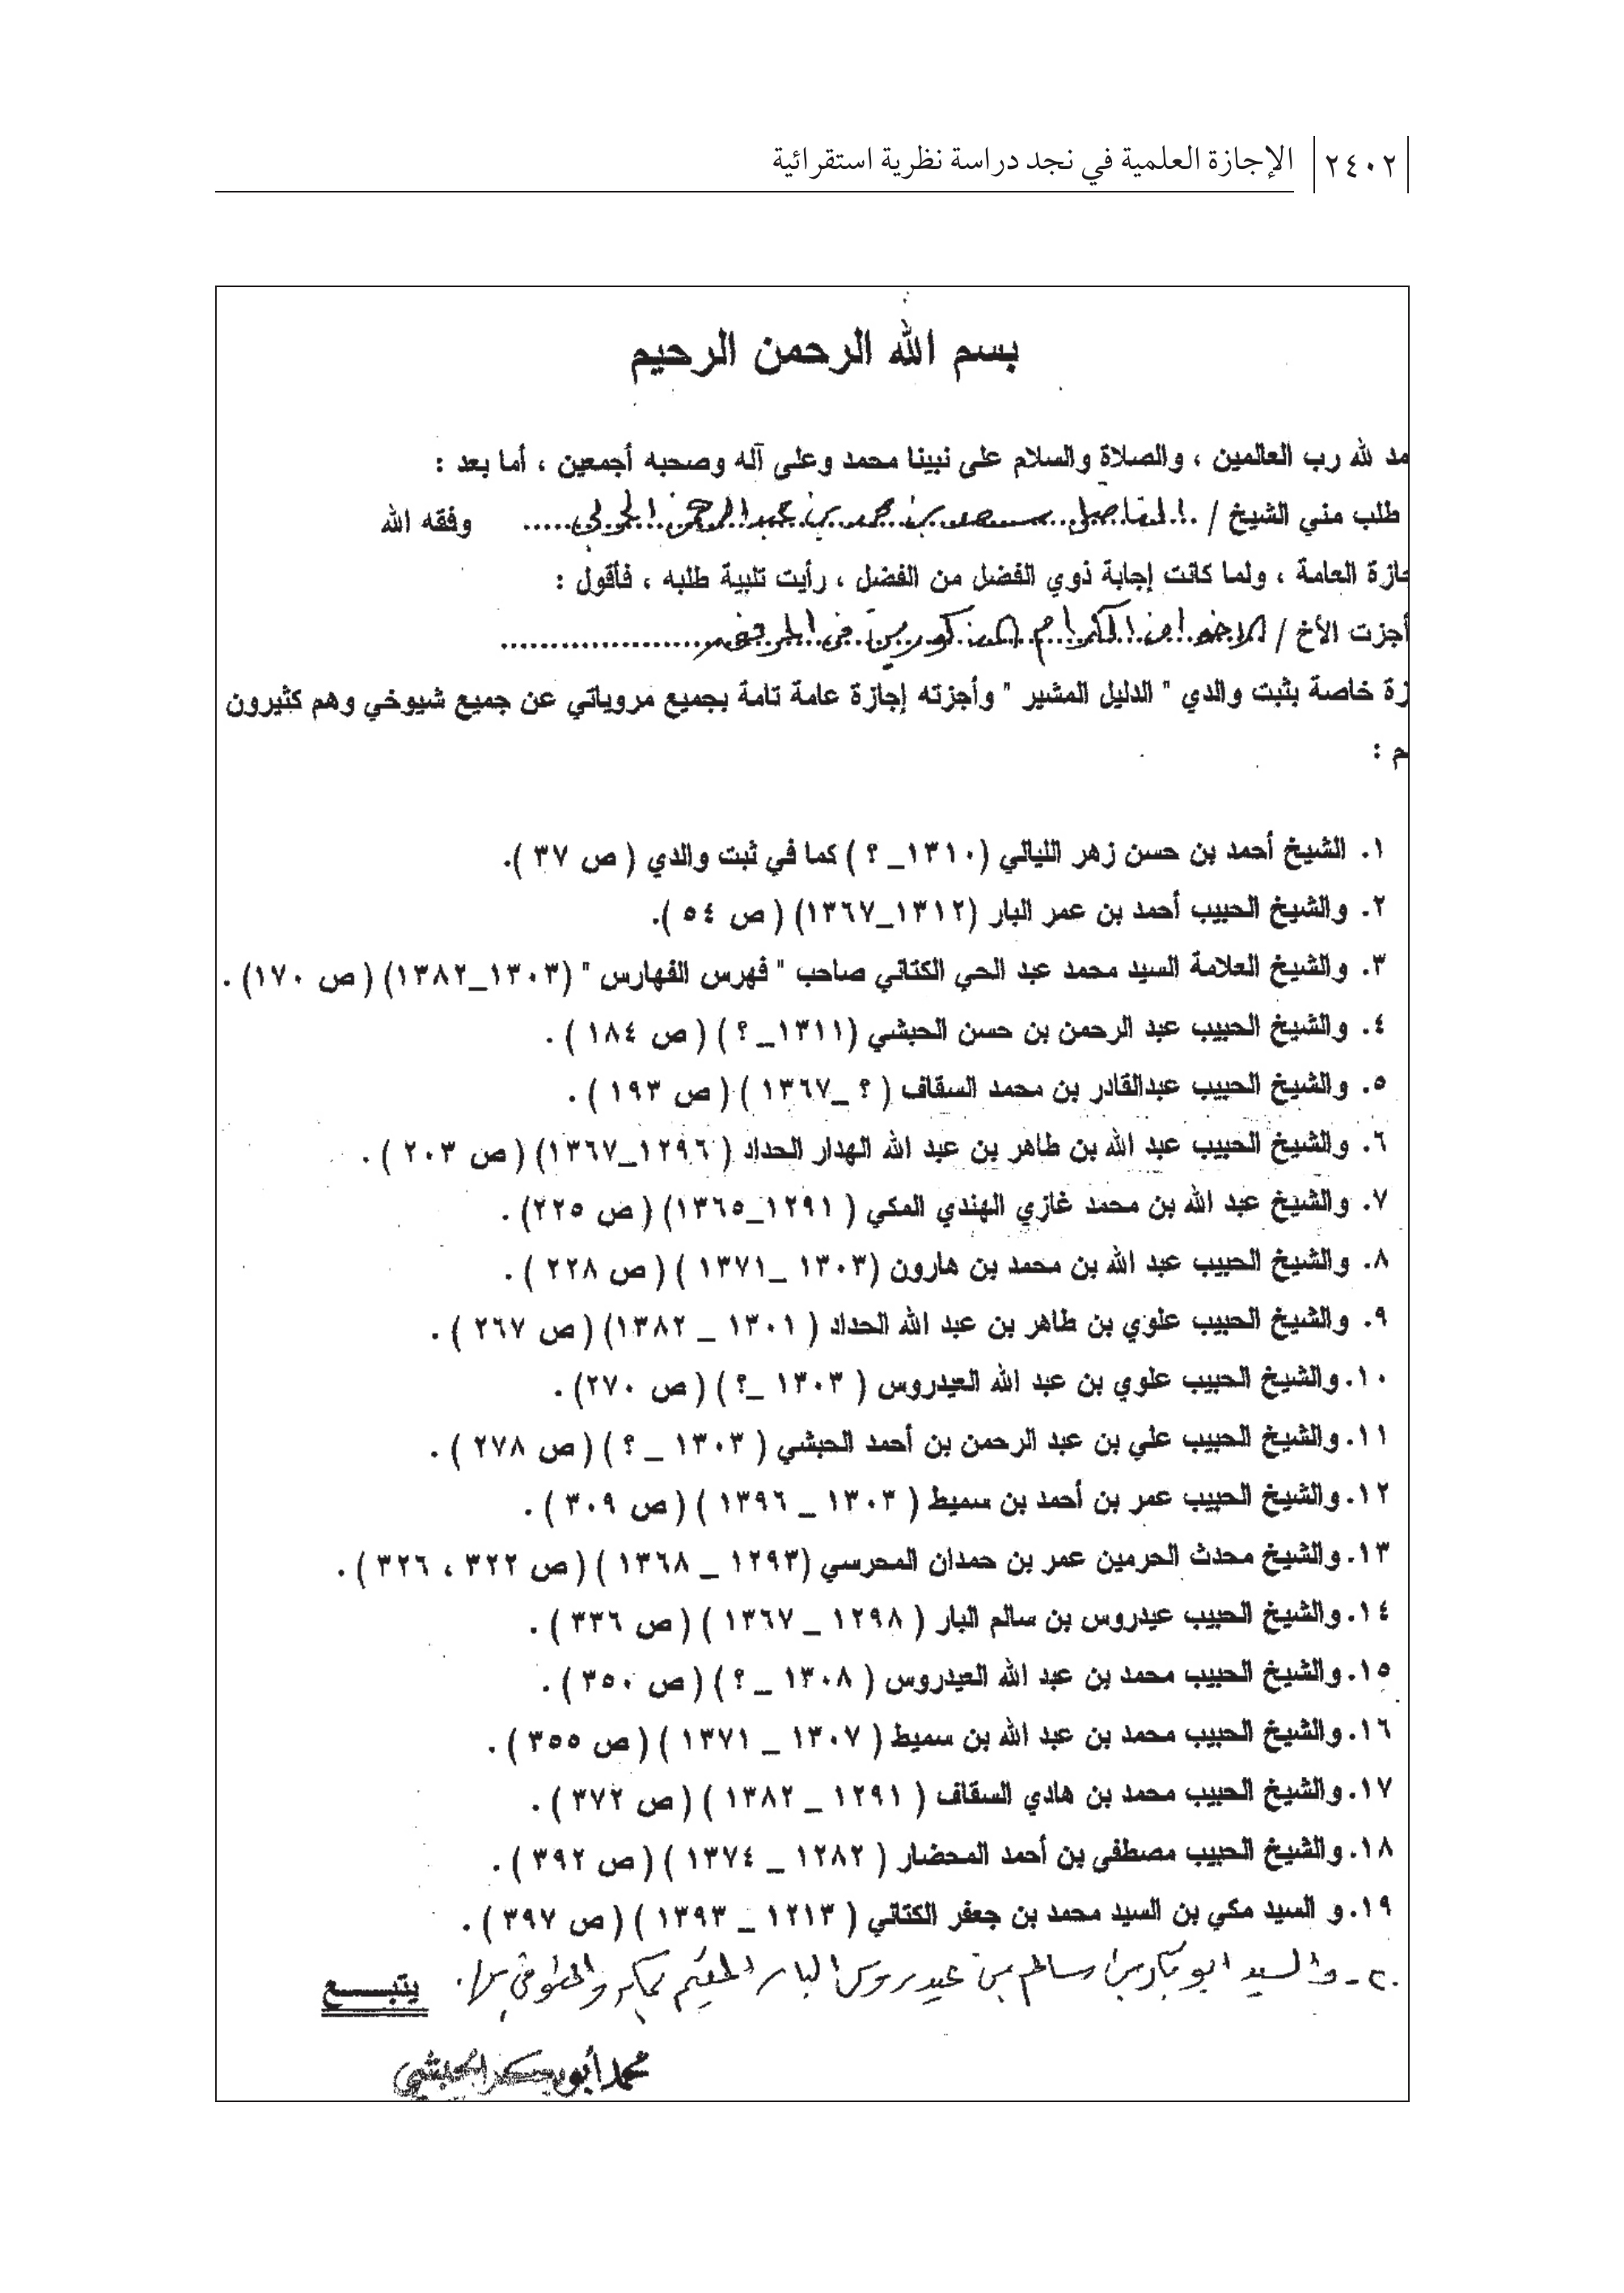 ٢٤٠٢ الإجازة العلمية في نجد دراسة نظرية استقرائية
بسم الله الرحمن الرحيم
مد لله رب العالمين ، والصلاة والسلام على نبينا محمد وعلى آله وصحبه أجمعين ، أما بعد :
طلب مني الشيخ / الفاضل سعد بن محمد بن عبدالرحمن وفقه الله
جازة العامة ، ولما كانت إجابة ذوي الفضل من الفضل ، رأيت تلبية طلبه ، فأقول :
أجزت الأخ / الإخوان الكرام المذكورين في المرفق
زة خاصة بثبت والدي " الدليل المشير " وأجزته إجازة عامة تامة بجميع مروياتي عن جميع شيوخي وهم كثيرون
م :
١. الشيخ أحمد بن حسن زهر الليالي (١٣١٠_ ؟ ) كما في ثبت والدي ( ص ٣٧ ).
٢. والشيخ الحبيب أحمد بن عمر البار (١٣١٢_١٣٦٧) ( ص ٥٤ ).
٣. والشيخ العلامة السيد محمد عبد الحي الكتاني صاحب " فهرس الفهارس " (١٣٠٣_١٣٨٢) ( ص ١٧٠) .
٤. والشيخ الحبيب عبد الرحمن بن حسن الحبشي (١٣١١_ ؟ ) ( ص ١٨٤ ) .
٥. والشيخ الحبيب عبدالقادر بن محمد السقاف ( ؟ _١٣٦٧ ) ( ص ١٩٣ ) .
٦. والشيخ الحبيب عبد الله بن طاهر بن عبد الله الهدار الحداد ( ١٢٩٦_١٣٦٧) ( ص ٢٠٣ ) .
٧. والشيخ عبد الله بن محمد غازي الهندي المكي ( ١٢٩١_١٣٦٥) ( ص ٢٢٥) .
٨. والشيخ الحبيب عبد الله بن محمد بن هارون (١٣٠٣ _١٣٧١ ) ( ص ٢٢٨ ) .
٩. والشيخ الحبيب علوي بن طاهر بن عبد الله الحداد ( ١٣٠١ _ ١٣٨٢) ( ص ٢٦٧ ) .
١٠. والشيخ الحبيب علوي بن عبد الله العيدروس ( ١٣٠٣ _؟ ) ( ص ٢٧٠) .
١١. والشيخ الحبيب علي بن عبد الرحمن بن أحمد الحبشي ( ١٣٠٣ _ ؟ ) ( ص ٢٧٨ ) .
١٢. والشيخ الحبيب عمر بن أحمد بن سميط ( ١٣٠٣ _ ١٣٩٦ ) ( ص ٣٠٩ ) .
١٣. والشيخ محدث الحرمين عمر بن حمدان المحرسي (١٢٩٣ _ ١٣٦٨ ) ( ص ٣٢٢ ، ٣٢٦ ) .
١٤. والشيخ الحبيب عيدروس بن سالم البار ( ١٢٩٨ _ ١٣٦٧ ) ( ص ٣٣٦ ) .
١٥. والشيخ الحبيب محمد بن عبد الله العيدروس ( ١٣٠٨ _ ؟ ) ( ص ٣٥٠ ) .
١٦. والشيخ الحبيب محمد بن عبد الله بن سميط ( ١٣٠٧ _ ١٣٧١ ) ( ص ٣٥٥ ) .
١٧. والشيخ الحبيب محمد بن هادي السقاف ( ١٢٩١ _ ١٣٨٢ ) ( ص ٣٧٢ ) .
١٨. والشيخ الحبيب مصطفى بن أحمد المحضار ( ١٢٨٢ _ ١٣٧٤ ) ( ص ٣٩٢ ) .
١٩. و السيد مكي بن السيد محمد بن جعفر الكتاني ( ١٢١٣ _ ١٣٩٣ ) ( ص ٣٩٧ ) .
٢٠- والسيد ابوبكر بن سالم بن عيدروس البار المقيم بمكة والمتوفى بها . يتبـــع
محمد أبوبكر الحبشي